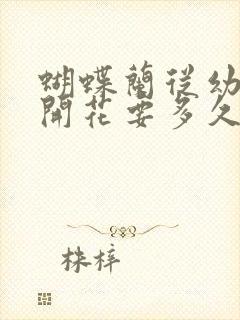 蝴蝶蘭從幼
開花要多久
株梓